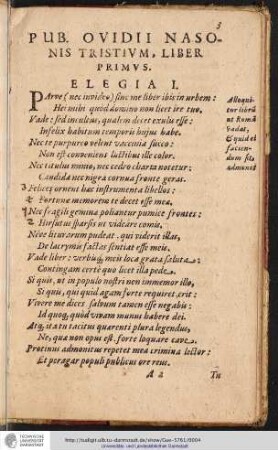 3
PUB. OVIDII NASO-
NIS TRISTIUM, LIBER
PRIMUS.
ELEGIA I.
PArve (nec invideo) sine me liber ibis in urbem:
Hei mihi quòd domino non licet ire tuo,
Vade: sed incultus, qualem decet exulis esse:
Infelix habitum temporis hujus habe.
Nec te purpureo velent vaccinia succo:
Non est conveniens luctibus ille color.
Nec titulus minio, nec cedro charta notetur:
Candida nec nigra cornua fronte geras.
Felices ornent hæc instrumenta libellos:
Fortunæ memorem te decet esse meæ.
Nec fragili geminæ poliantur pumice frontes:
Hirsutus sparsis ut videare comis.
Neve liturarum pudeat. qui viderit illas,
De lacrymis factas sentiat esse meis.
Vade liber: verbisq, meis loca grata saluta:
Contingam certè quo licet illa pede.
Si quis, ut in populo nostri non immemor illo,
Si quis, qui quid agam forte requiret, erit:
Vivere me dices: salvum tamen esse negabis:
Id quoq, quod vivam munus habere dei.
Atq, ita tu tacitus quærenti plura legendus,
Ne, quæ non opus est. forte loquare cave.
Protinus admonitus repetet mea crimina lector:
Et peragar populi publicus ore reus.
A 2 Tu
Alloqui-
tur librũ
ut Romã
vadat,
& quid ei
facien-
dum sit,
admonet
http://tudigit.ulb.tu-darmstadt.de/show/Gue-5761/0004
Universitäts- und Landesbibliothek Darmstadt